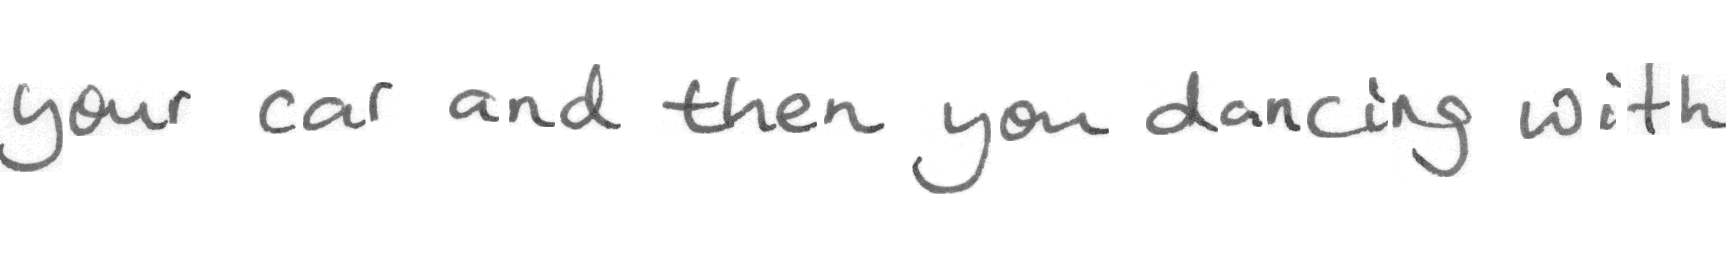 your car and then you dancing with